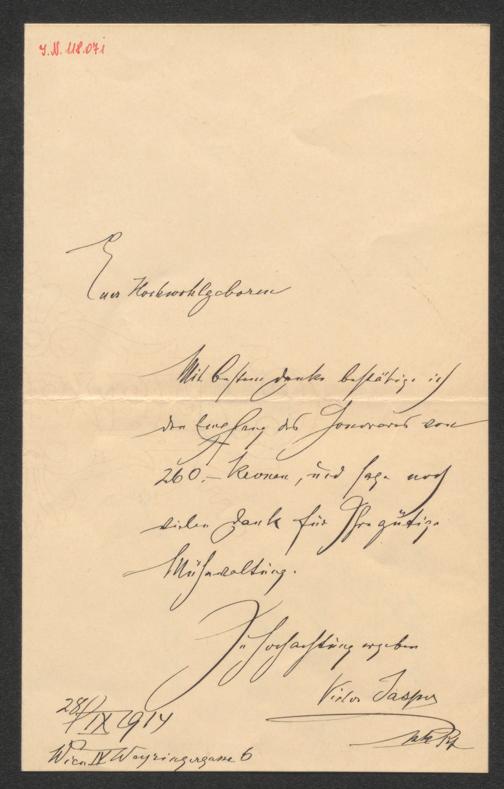 J.N. 118.071
Euer Hochwohlgeboren
Mit bestem Danke bestätige ich
den Empfang des Honorares von
260.– Kronen, und sage noch
vielen Dank für Ihre gütige
Mühewaltung.
In Hochachtung ergeben
Victor Jasper
28/IX 1914
Wien IV Weyringergasse 6